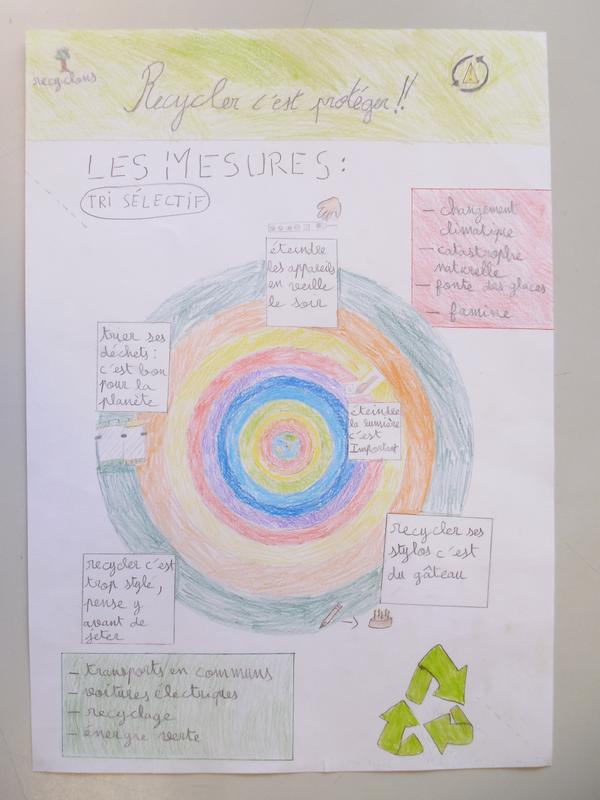 recyclons
Recycler c'est protéger!!
LES MESURES:
TRI SÉLECTIF
- changement
climatique
- catastrophe
naturelle
- fonte des glaces
- famine
éteindre
les appareils
en veille
le soir
trier ses
déchets:
c'est bon
pour la
planète
éteindre
la lumière
c'est
Important
recycler ses
stylos c'est
du gâteau
recycler c'est
trop stylé,
pense y
avant de
jeter
- transports en communs
- voitures électriques
- recyclage
- énergie verte